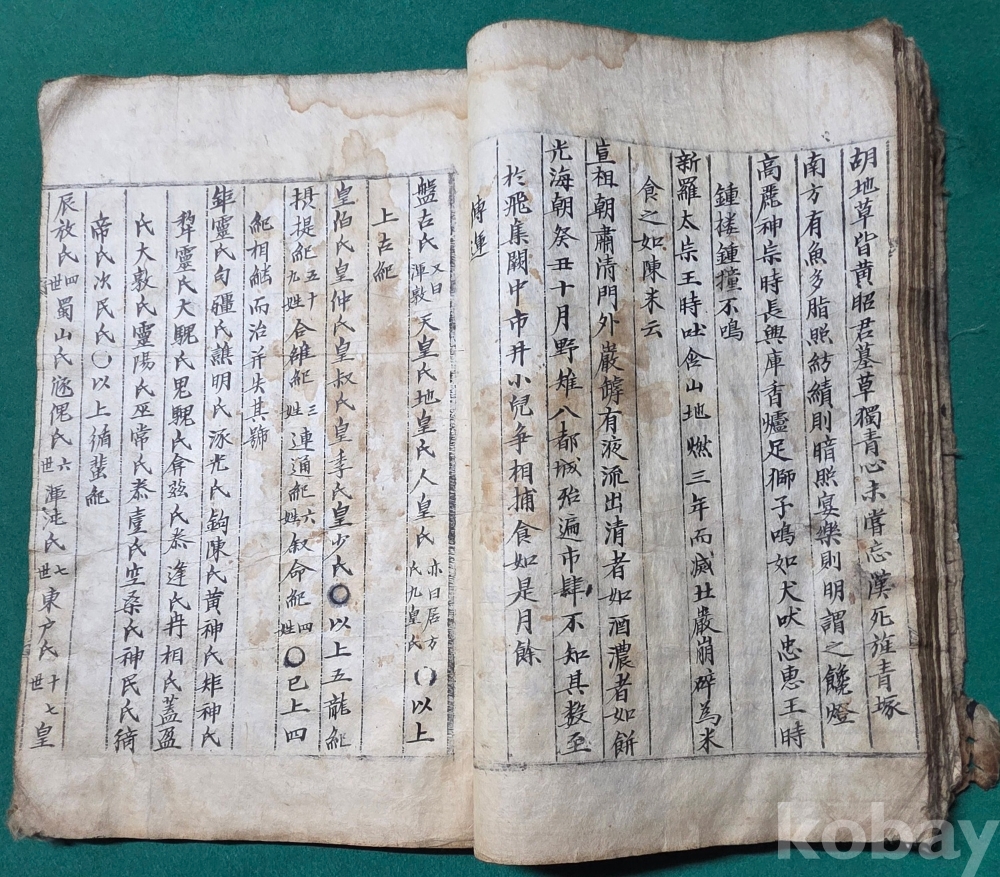 胡地草皆黃昭君墓草獨青心未嘗忘漢死旌青塚
南方有魚多脂照紡績則暗照宴樂則明謂之饞燈
高麗神宗時長興庫香爐足獅子鳴如犬吠忠惠王時
鍾樓鍾撞不鳴
新羅太宗王時吐含山地燃三年而滅 巖崩碎為米
食之如陳末云
宣祖朝肅清門外巖罅有液流出清者如酒濃者如餅
光海朝癸丑十月野雉八都城殆遍市肆不知其數至
於飛集闕中市井小兒爭相捕食如是月餘
傳運
盤古氏又曰渾敦天皇氏地皇氏人皇氏亦曰居方氏九皇氏〇以上
上古紀
皇伯氏皇仲氏皇叔氏皇季氏皇少氏〇以上五龍紀
摄提紀五十九姓合維紀三姓連通紀六姓叙命紀四姓〇已上四
紀相繼而治并失其號
鉅靈氏句疆氏譙明氏涿光氏鉤陳氏黃神氏矩神氏
犂靈氏大騩氏鬼騩氏弇茲氏泰逢氏冉相氏蓋盈
氏大敦氏靈陽氏巫常氏泰壹氏空桑氏神民氏倚
帝氏次民氏〇以上循蜚紀
辰放氏四世蜀山氏豗傀氏六世渾沌氏七世東户氏十七世皇
kobay